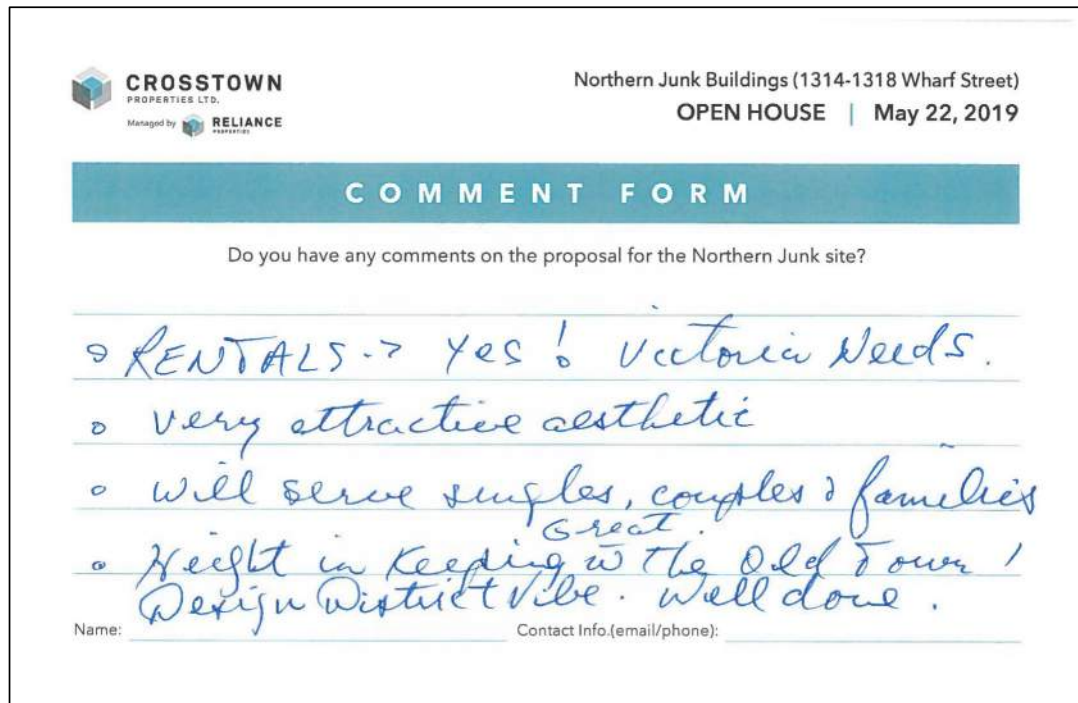 CROSSTOWN
PROPERTIES LTD.
Managed by RELIANCE
PROPERTIES
Northern Junk Buildings (1314-1318 Wharf Street)
OPEN HOUSE | May 22, 2019
COMMENT FORM
Do you have any comments on the proposal for the Northern Junk site?
RENTALS -> Yes! Victoria Needs.
very attractive aesthetic
will serve singles, couples & families
Great.
Height in Keeping w The Old Town /
Design District Vibe. Well done.
Name: Contact Info.(email/phone):